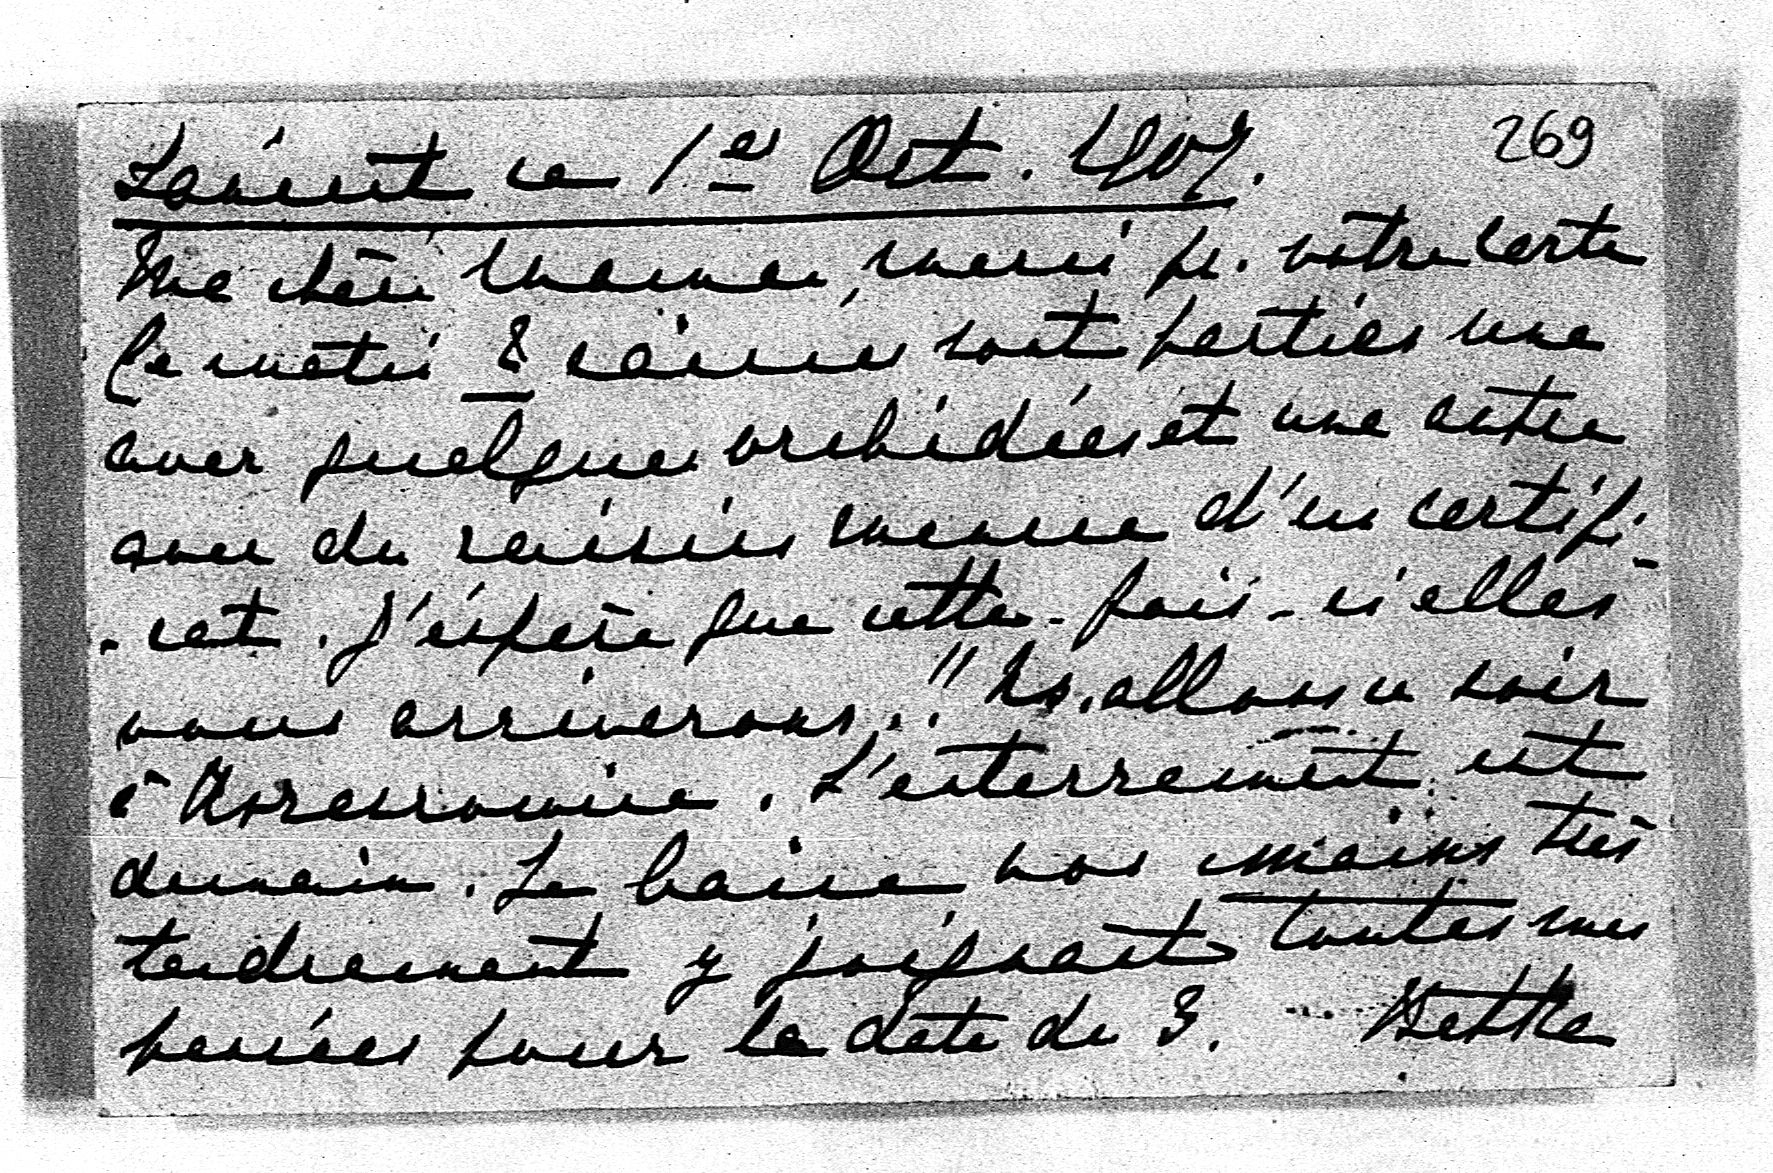 269
Lańcut ce 1er Oct. 1907.
Ma chère Maman, merci pr. votre carte
Ce matin 2 caisses sont parties une
avec quelques orchidées et une autre
avec du raisin munie d'un certifi-
-cat. J'espère que cette-fois-ci elles
vous arriverons.." Ns. allons ce soir
à . L'enterrement est
demain. Je baise vos mains très
tendrement y joignant toutes mes
pensées pour la date du 3.